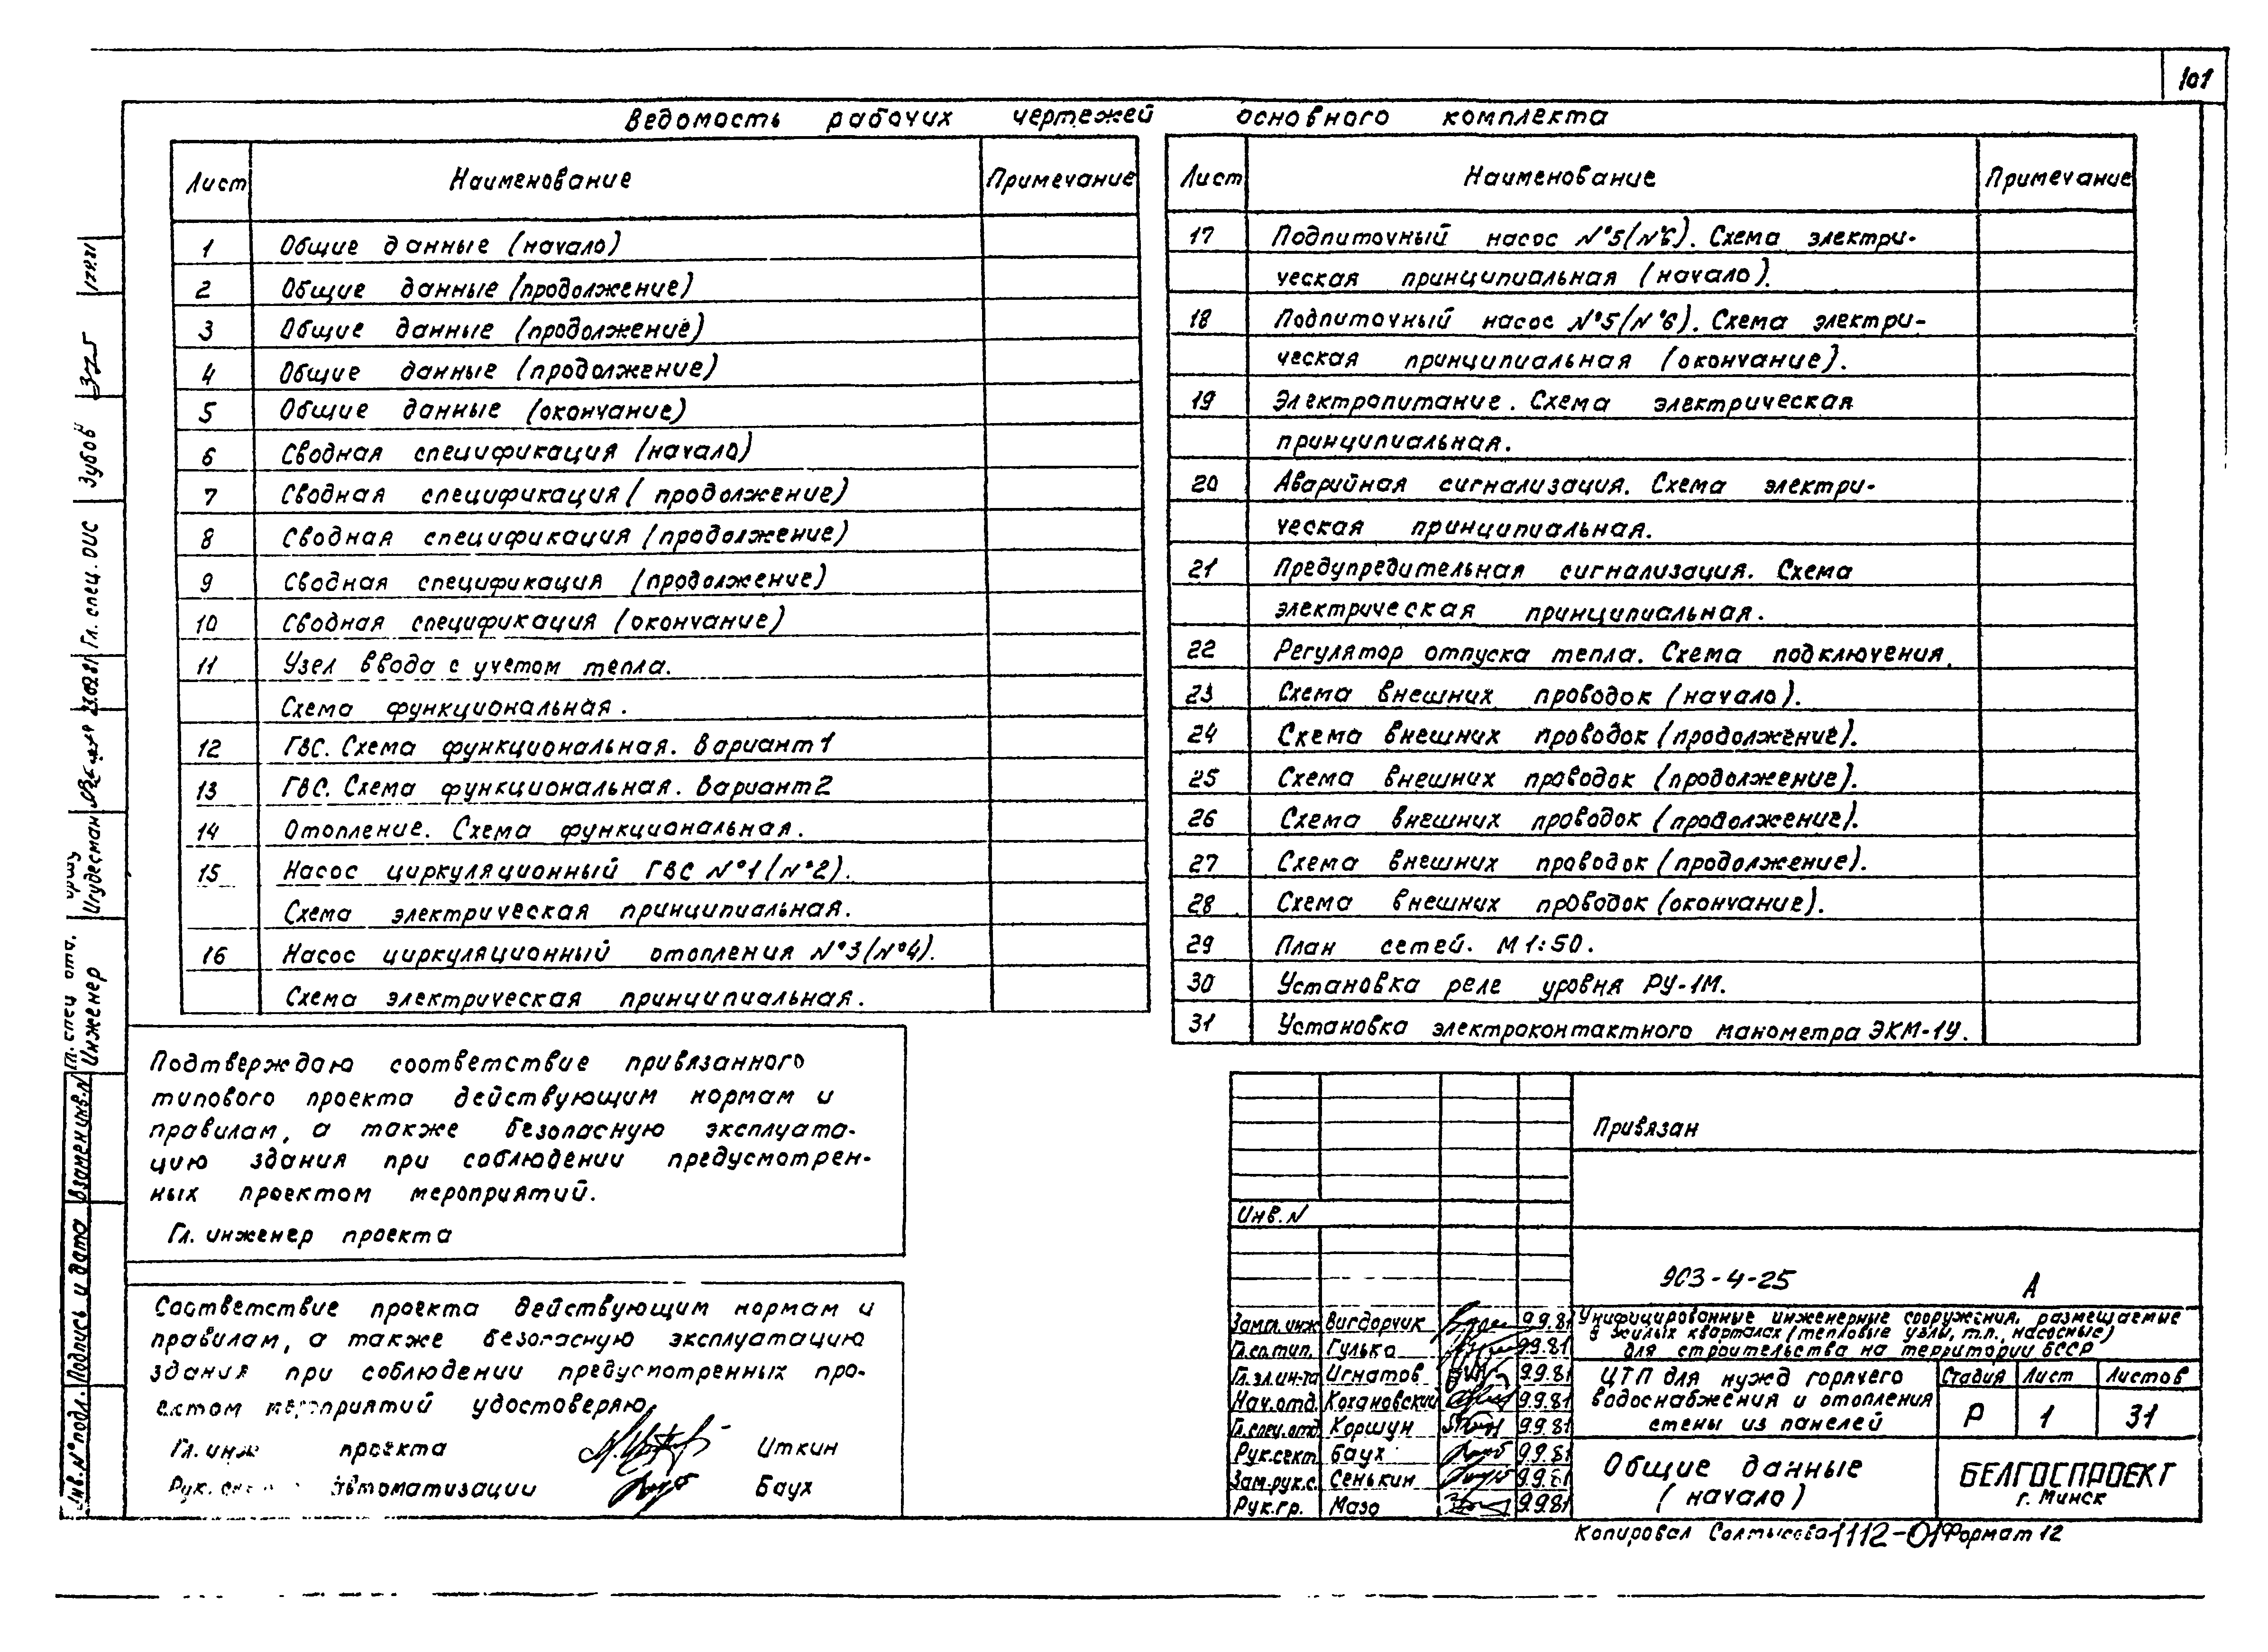 101
Ведомость рабочих чертежей основного комплекта
Лист Наименование Примечание
1 Общие данные (начало)
2 Общие данные (продолжение)
3 Общие данные (продолжение)
4 Общие данные (продолжение)
5 Общие данные (окончание)
6 Сводная спецификация (начало)
7 Сводная спецификация (продолжение)
8 Сводная спецификация (продолжение)
9 Сводная спецификация (продолжение)
10 Сводная спецификация (окончание)
11 Узел ввода с учетом тепла.
Схема функциональная.
12 ГВС. Схема функциональная. Вариант 1
13 ГВС. Схема функциональная. Вариант 2
14 Отопление. Схема функциональная.
15 Насос циркуляционный ГВС №1(№2).
Схема электрическая принципиальная.
16 Насос циркуляционный отопления №3(№4).
Схема электрическая принципиальная.
Лист Наименование Примечание
17 Подпиточный насос №5(№6). Схема электри-
ческая принципиальная (начало).
18 Подпиточный насос №5(№6). Схема электри-
ческая принципиальная (окончание).
19 Электропитание. Схема электрическая
принципиальная.
20 Аварийная сигнализация. Схема электри-
ческая принципиальная.
21 Предупредительная сигнализация. Схема
электрическая принципиальная.
22 Регулятор отпуска тепла. Схема подключения.
23 Схема внешних проводок (начало).
24 Схема внешних проводок (продолжение).
25 Схема внешних проводок (продолжение).
26 Схема внешних проводок (продолжение).
27 Схема внешних проводок (продолжение).
28 Схема внешних проводок (окончание).
29 План сетей. М 1:50.
30 Установка реле уровня РУ-1М.
31 Установка электроконтактного манометра ЭКМ-1У.
Подтверждаю соответствие привязанного
типового проекта действующим нормам и
правилам, а также безопасную эксплуата-
цию здания при соблюдении предусмотрен-
ных проектом мероприятий.
Гл. инженер проекта
Соответствие проекта действующим нормам и
правилам, а также безопасную эксплуатацию
здания при соблюдении предусмотренных про-
ектом мероприятий удостоверяю
Гл. инж проекта Иткин
Рук. автоматизации Баух
Привязан
Инв. N
903-4-25 А
Зам.гл.инж Вигдорчик 9.9.81
Гл.сп.тип. Гулько 9.9.81
Гл.эл.ин-та Игнатов 9.9.81
Нач.отд. Кохановский 9.9.81
Гл.спец.отд Коршун 9.9.81
Рук.сект Баух 9.9.81
Зам.рук.с. Сенькин 9.9.81
Рук.гр. Мазо 9.9.81
Унифицированные инженерные сооружения, размещаемые
в жилых кварталах (тепловые узлы, т.п., насосные)
для строительства на территории БССР
ЦТП для нужд горячего
водоснабжения и отопления
стены из панелей
Стадия Лист Листов
Р 1 31
Общие данные
(начало)
БЕЛГОСПРОЕКТ
г. Минск
Копировал 1112-01 Формат 12
Гл. спец. ОИС Зубов
Гл. спец отд.
Инженер Игудесман 23.02.81
Инв.№ подл. Подпись и дата Взамен инв.N